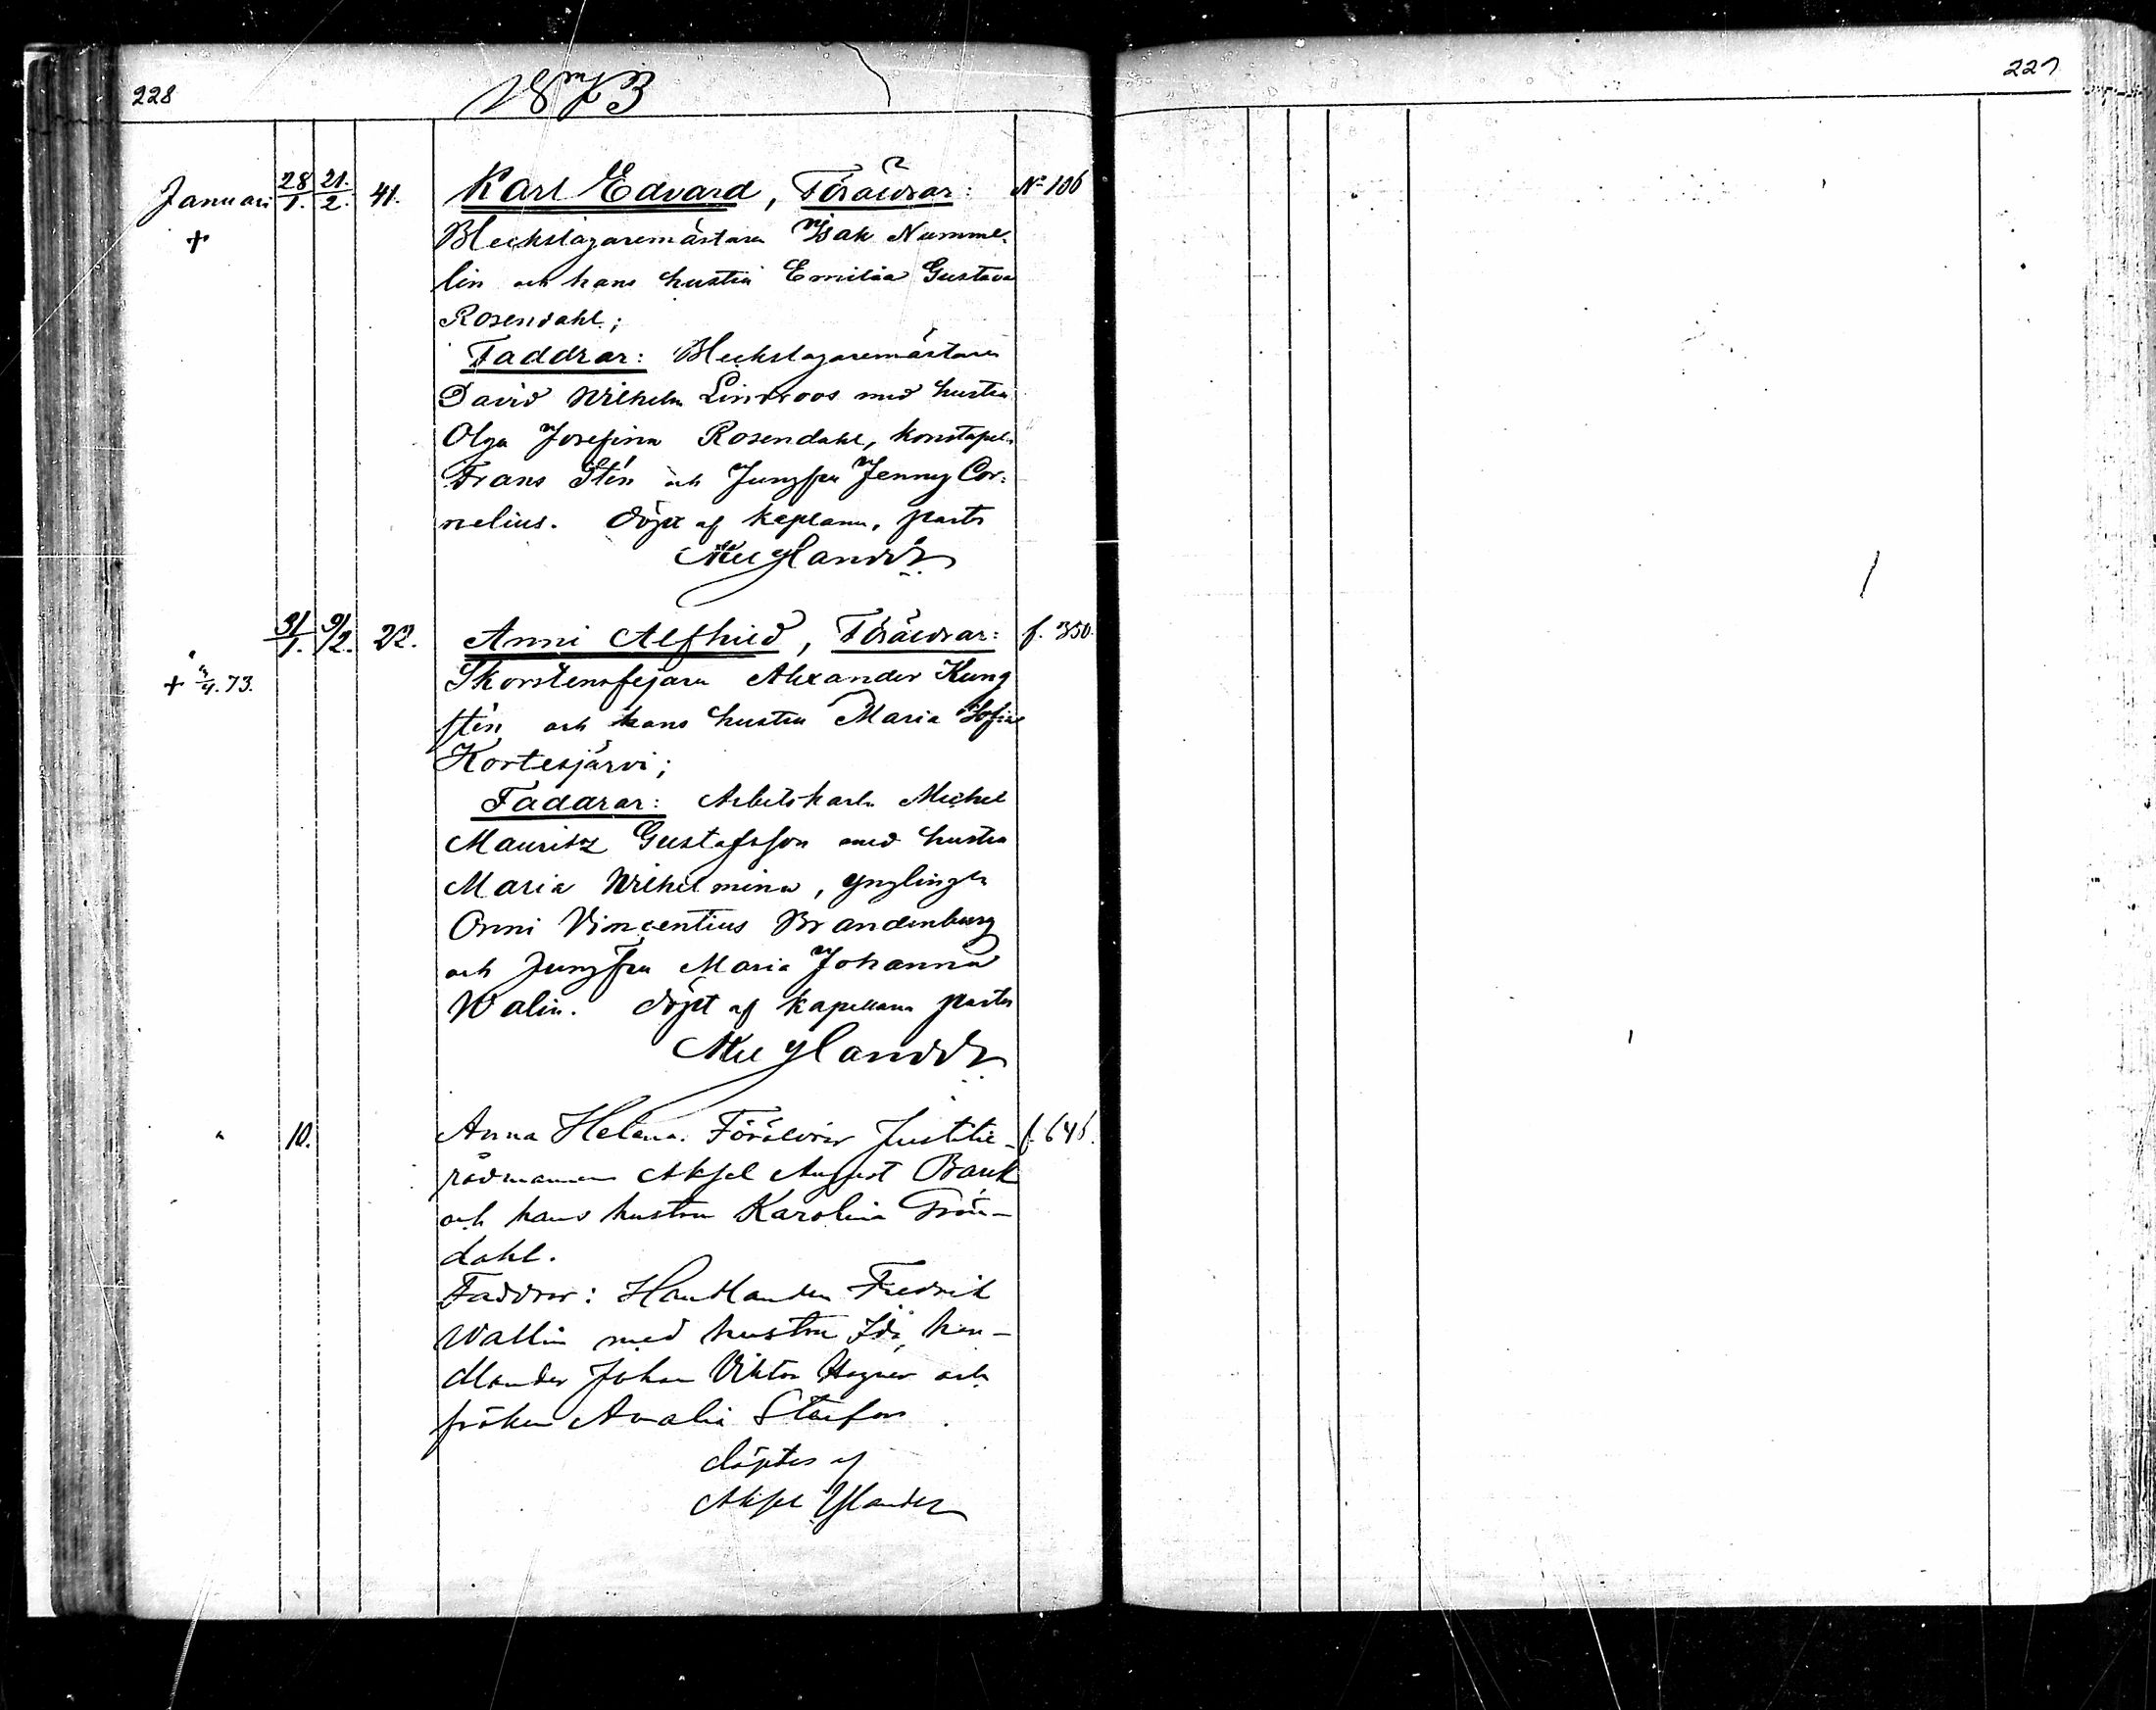 228
1873
227
Januari 28/1. 21./2. 41. Karl Edvard, Föräldrar: No 106
+ Bleckslagaremästaren Isak Numme-
lin och hans hustru Emilia Gustava
Rosendahl;
Faddrar: Bleckslagaremästaren
David Wilhelm Lindroos med hustru
Olga Josefina Rosendahl, Konstapeln
Frans Stén och Jungfru Jenny Cor-
nelius. Döpt af Kaplanen, pastor
Nylander
31/1. 9/2. 22. Anni Alfhild, Föräldrar: f. 350.
+ /4. 73. Skorstensfejaren Alexander Kung
stén och hans hustru Maria Sofia
Kortesjärvi;
Faddrar: Arbetskarln Michel
Mauritz Gustafsson med hustru
Maria Wilhelmina, ynglingen
Onni Vincentius Brandenburg
och Jungfru Maria Johanna
Walin. Döpt af Kapellanen pastor
Nylander
10. Anna Helena. Föräldrar Justitie- f. 646.
rådmannen Aksel August Banck
och hans hustru Karolina Grön-
dahl.
Faddrar: Handlanden Fredrik
Wallin med hustru Ida, han-
dlanden Johan Viktor Hagner och
fröken Amalia
döptes af
Aksel Ylander